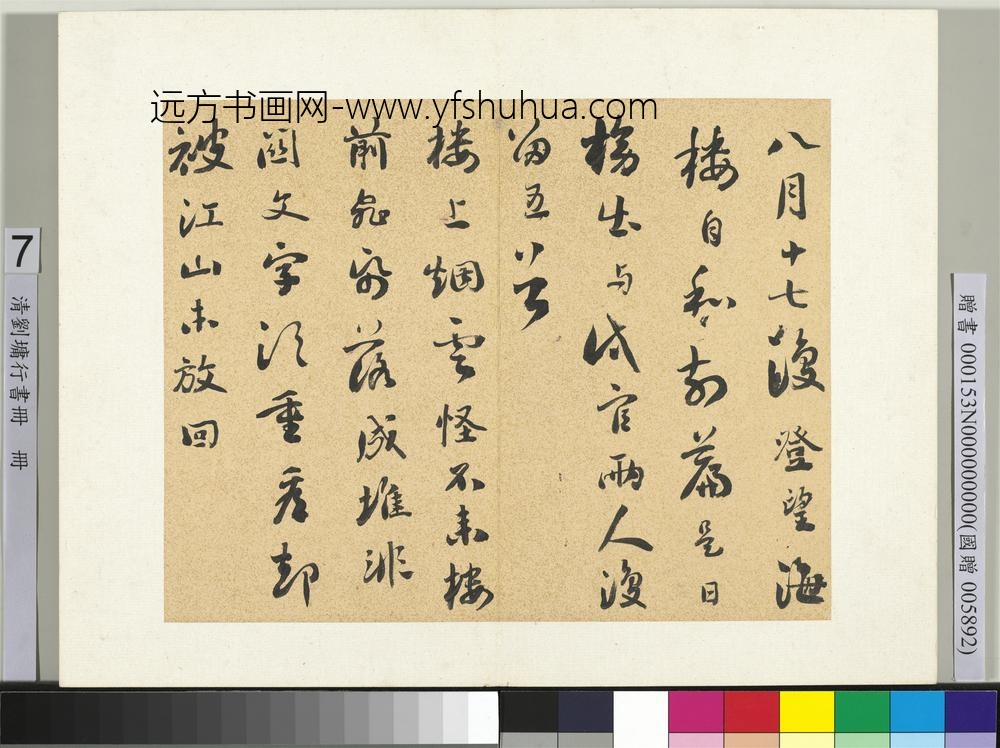 远方书画网-www.yfshuhua.com
八月十七復澄望海
樓自和前篇是日
榜出与試官兩人復
留五首
樓上烟雲怪不來樓
前飛紙落成堆非
關文字須重看却
被江山未放回
7
清劉墉行書冊 冊
贈書 000153N000000000(國贈 005892)